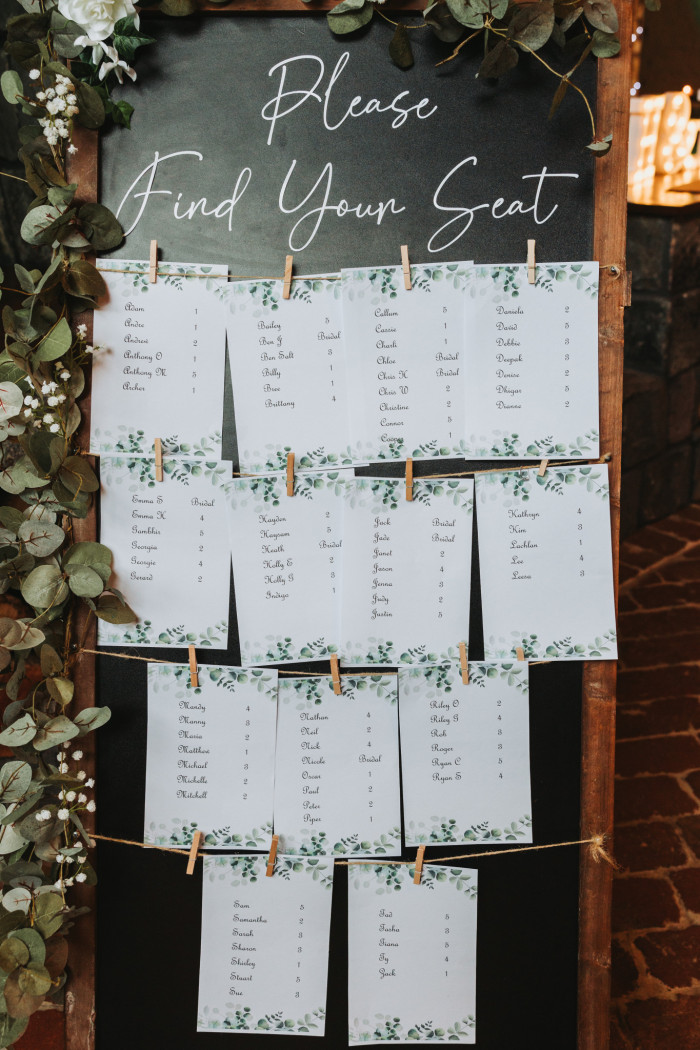 Please
Find Your Seat
Adam 1
Andre 1
Andrew 2
Anthony O 1
Anthony M 5
Archer 1
Bailey 5
Ben J Bridal
Ben Salt 5
Billy 1
Bree 1
Brittany 4
Callum 5
Cassie 1
Charli 1
Chloe Bridal
Chris H Bridal
Chris W 2
Christine 2
Connor 5
Cooper 1
Daniela 2
David 5
Debbie 3
Deepak 3
Denise 2
Dhigar 5
Dianne 2
Emma S Bridal
Emma H 4
Gambhir 5
Georgia 2
Georgie 4
Gerard 2
Hayden 2
Haysam 5
Heath Bridal
Holly E 2
Holly G 3
Indigo 1
Jack Bridal
Jade Bridal
Janet 2
Jason 4
Jenna 3
Judy 2
Justin 5
Kathryn 4
Kim 3
Lachlan 1
Lee 4
Leesa 3
Mandy 4
Manny 3
Maria 2
Matthew 1
Michael 3
Michelle 2
Mitchell 2
Nathan 4
Neil 2
Nick 4
Nicole Bridal
Oscar 1
Paul 2
Peter 2
Piper 1
Riley O 2
Riley G 4
Rob 3
Roger 3
Ryan C 5
Ryan S 4
Sam 5
Samantha 2
Sarah 3
Sharon 3
Shirley 1
Stuart 5
Sue 3
Tad 5
Tasha 3
Tiana 5
Ty 4
Zack 1